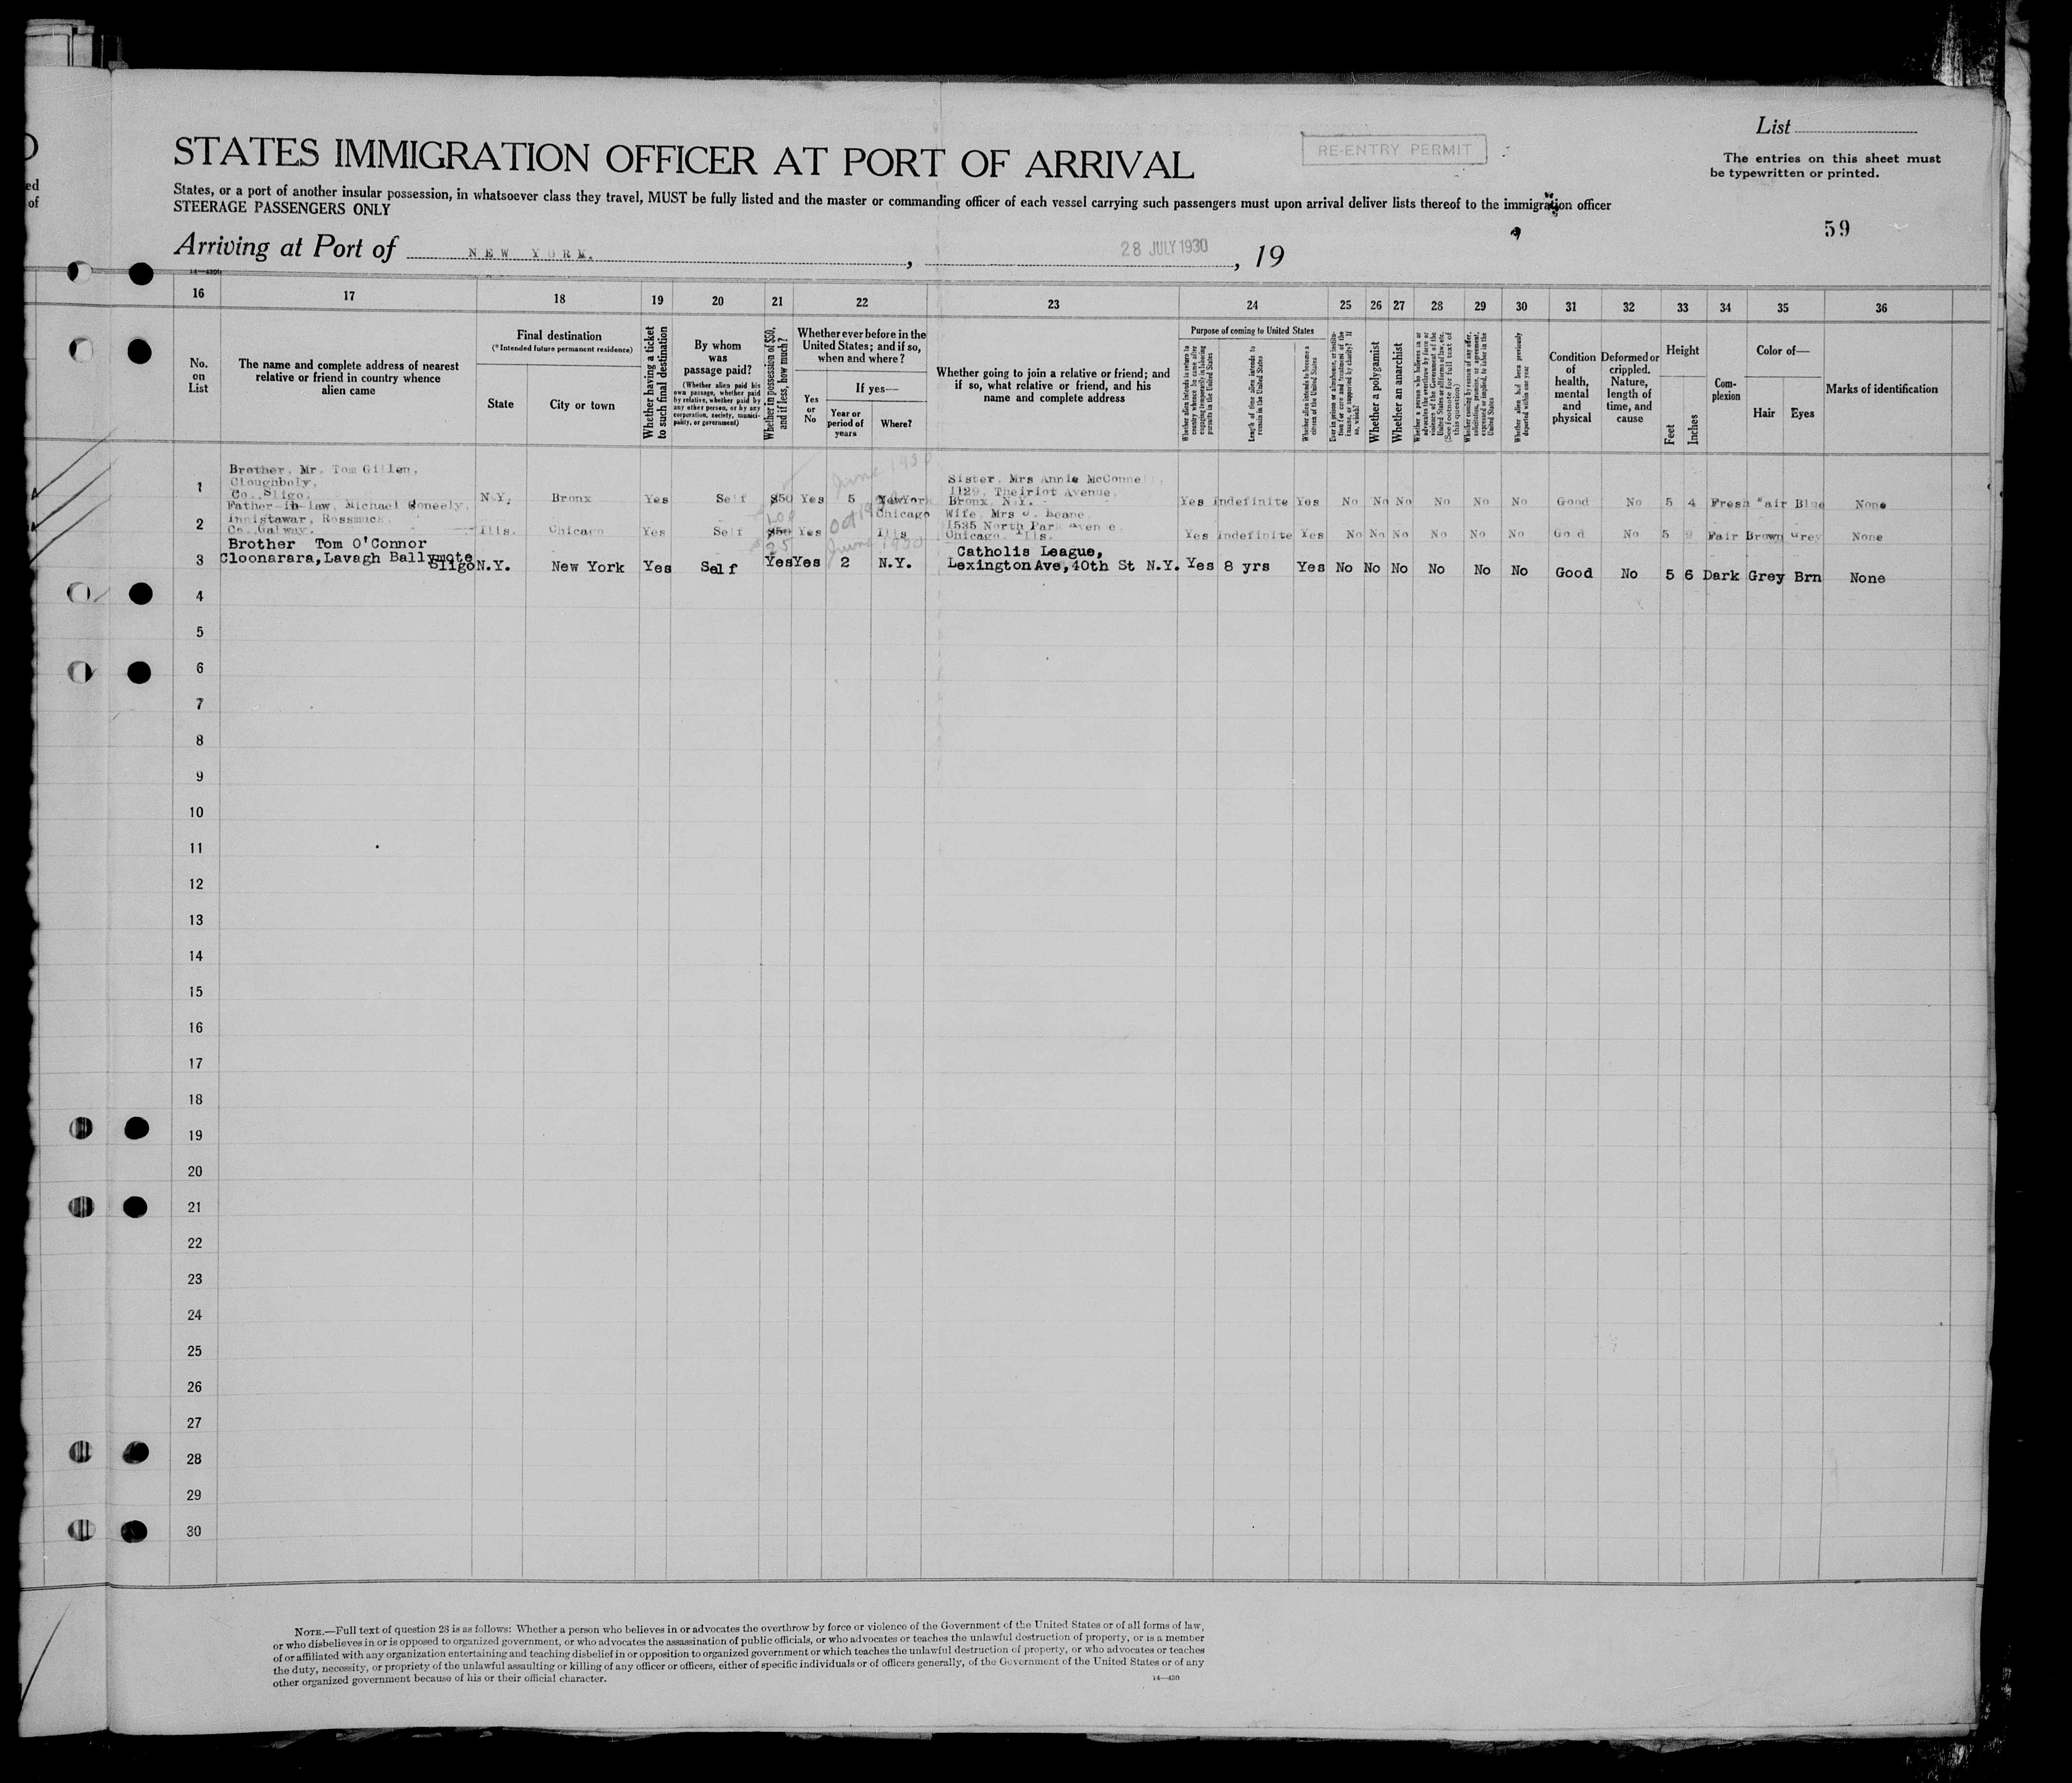 List
STATES IMMIGRATION OFFICER AT PORT OF ARRIVAL
RE-ENTRY PERMIT
The entries on this sheet must
be typewritten or printed.
ed
of
States, or a port of another insular possession, in whatsoever class they travel, MUST be fully listed and the master or commanding officer of each vessel carrying such passengers must upon arrival deliver lists thereof to the immigration officer
STEERAGE PASSENGERS ONLY
59
Arriving at Port of NEW YORK. , 28 JULY 1930 , 19
16 17 18 19 20 21 22 23 24 25 26 27 28 29 30 31 32 33 34 35 36
No.
on
List
The name and complete address of nearest
relative or friend in country whence
alien came
Final destination
(*Intended future permanent residence)
State
City or town
Whether having a ticket
to such final destination
By whom
was
passage paid?
(Whether alien paid his
own passage, whether paid
by relative, whether paid by
any other person, or by any
corporation, society, munici-
pality, or government)
Whether in possession of $50,
and if less, how much?
Whether ever before in the
United States; and if so,
when and where?
Yes
or
No
If yes—
Year or
period of
years
Where?
Whether going to join a relative or friend; and
if so, what relative or friend, and his
name and complete address
Purpose of coming to United States
Whether alien intends to return to
country whence he came after
engaging temporarily in laboring
pursuits in the United States
Length of time alien intends to
remain in the United States
Whether alien intends to become a
citizen of the United States
Ever in prison or almshouse, or institu-
tion for care and treatment of the
insane, or supported by charity? If
so, which?
Whether a polygamist
Whether an anarchist
Whether a person who believes in or
advocates the overthrow by force or
violence of the Government of the
United States or all forms of law, etc.
(See footnote for full text of
this question)
Whether coming by reason of any offer,
solicitation, promise, or agreement,
expressed or implied, to labor in the
United States
Whether alien had been previously
deported within one year
Condition
of
health,
mental
and
physical
Deformed or
crippled.
Nature,
length of
time, and
cause
Height
Feet
Inches
Com-
plexion
Color of—
Hair
Eyes
Marks of identification
June 1930
Brother, Mr. Tom Gillen,
Cloughboly,
Co. Sligo.
1 N.Y. Bronx Yes Self $50 Yes 5 NewYork
Sister, Mrs Annie McConnell,
1129, Theiriot Avenue,
Bronx, N.Y. Yes Indefinite Yes No No No No No No Good No 5 4 Fresh Fair Blue None
Father-in-law, Michael Coneely,
Innistawar, Rossmuck,
Co. Galway.
2 Ills. Chicago Yes Self 100 $50 Yes Oct Chicago
Ills
Wife, Mrs Deane
1535 North Park Avenue
Chicago. Ills. Yes Indefinite Yes No No No No No No Good No 5 9 Fair Brown Grey None
Brother Tom O'Connor
25 June 1930
3 Cloonarara, Lavagh Ballymote
Sligo N.Y. New York Yes Self Yes Yes 2 N.Y.
Catholis League,
Lexington Ave, 40th St N.Y. Yes 8 yrs Yes No No No No No No Good No 5 6 Dark Grey Brn None
4
5
6
7
8
9
10
11
12
13
14
15
16
17
18
19
20
21
22
23
24
25
26
27
28
29
30
NOTE.—Full text of question 28 is as follows: Whether a person who believes in or advocates the overthrow by force or violence of the Government of the United States or of all forms of law,
or who disbelieves in or is opposed to organized government, or who advocates the assassination of public officials, or who advocates or teaches the unlawful destruction of property, or is a member
of or affiliated with any organization entertaining and teaching disbelief in or opposition to organized government or which teaches the unlawful destruction of property, or who advocates or teaches
the duty, necessity, or propriety of the unlawful assaulting or killing of any officer or officers, either of specific individuals or of officers generally, of the Government of the United States or of any
other organized government because of his or their official character.
14—430